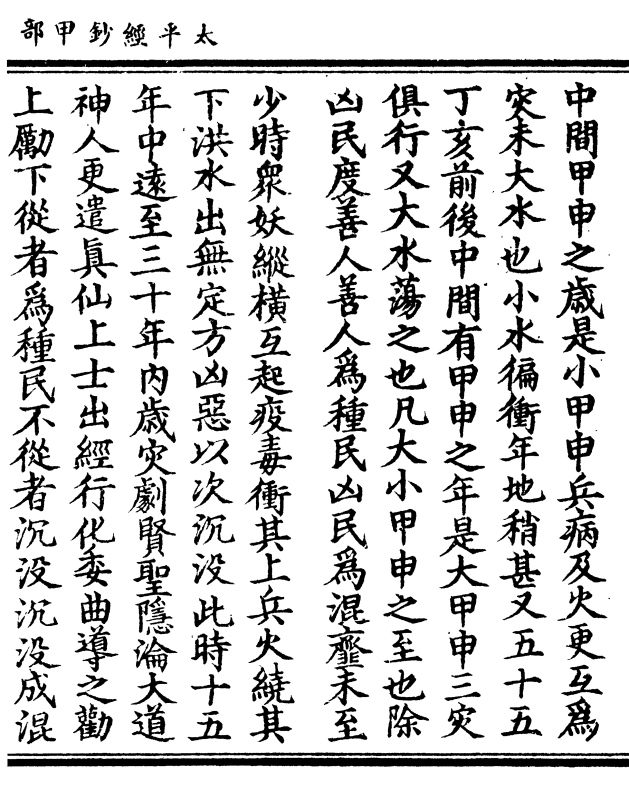 太平經鈔甲部
中間甲申之歲是小甲申兵病及火更互爲
灾未大水也小水徧衝年地稍甚又五十五
丁亥前後中間有甲申之年是大甲申三灾
俱行又大水蕩之也凡大小甲申之至也除
凶民度善人善人爲種民凶民爲混齏未至
少時衆妖縱橫互起疫毒衝其上兵火繞其
下洪水出無定方凶惡以次沉没此時十五
年中遠至三十年內歲灾劇賢聖隱淪大道
神人更遣眞仙上士出經行化委曲導之勸
上勵下從者爲種民不從者沉没沉没成混